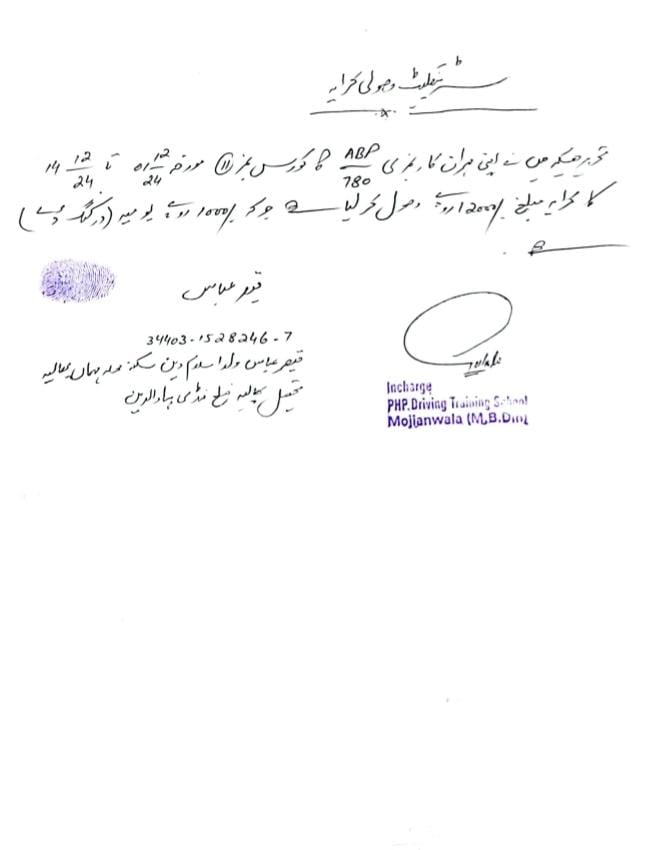 سرٹیفکیٹ وصولی کرایہ
تحریر ہیکہ میں نے اپنی مہران کار نمبری ABP/780 کا کورس نمبر 11 مورخہ 01-12/24 تا 14-12/24
کا کرایہ مبلغ /12000 روپے وصول کر لیا ہے جو کہ /1000 روپے یومیہ (ورکنگ ڈے)
ہے۔
قیصر عباس
34403-1528246-7
قیصر عباس ولد اسلام دین سکنہ محلہ پھالیہ
تحصیل پھالیہ ضلع منڈی بہاوالدین
Incharge
PHP. Driving Training School
Mojianwala (M.B.Din)